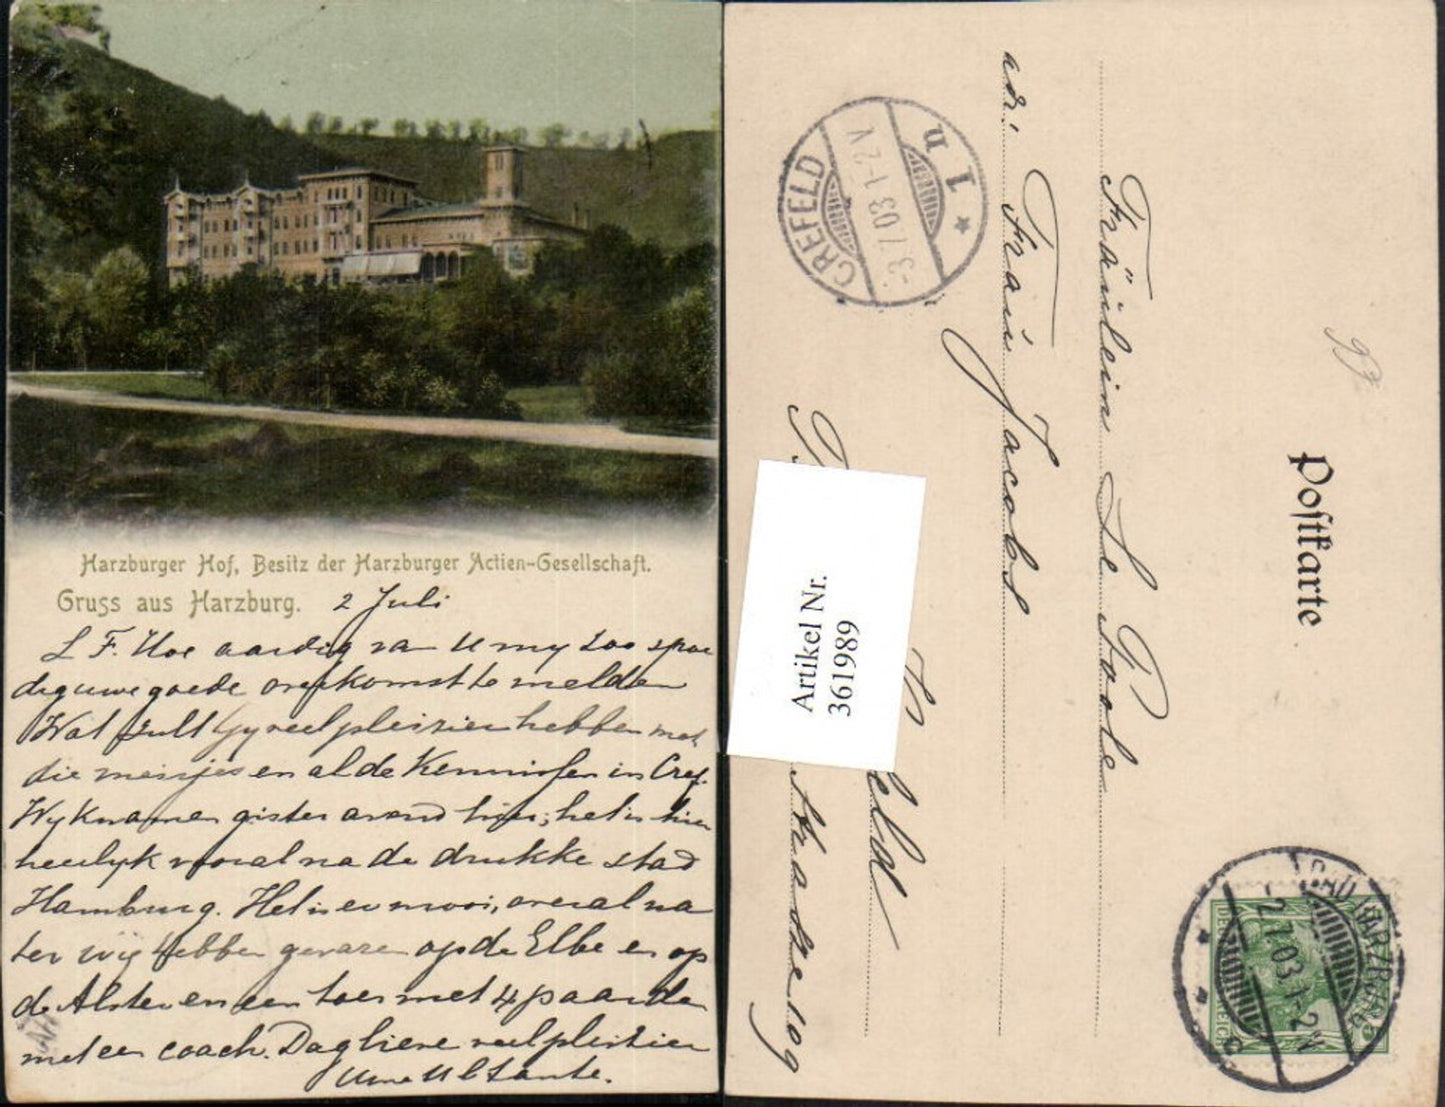 Harzburger Hof, Besitz der Harzburger Actien-Gesellschaft.
Gruss aus Harzburg. 2 Juli
L F. Hoe aardig van U my zoo spoe
dig uwe goede overkomst te melden
Wat zult Gy veel pleizier hebben met
die meisjes en al de Kennissen in Cref.
Wy kwamen gister avond hier; het is hier
heerlyk vooral na de drukke stad
Hamburg. Het is er mooi, vooral na
ter wij hebben gevaren op de Elbe en op
de Alster en een toer met 4 paarden
met een coach. Dag lieve veel pleizier
Uwe U l Tante.
CREFELD
1 n
-3.7.03.1-2V
adr: Frau Jacobs
Fräulein Le Poole
Postkarte
Artikel Nr.
361989
109
BAD HARZBURG
2.7.03.1-2N
DEUTSCHES REICH
5